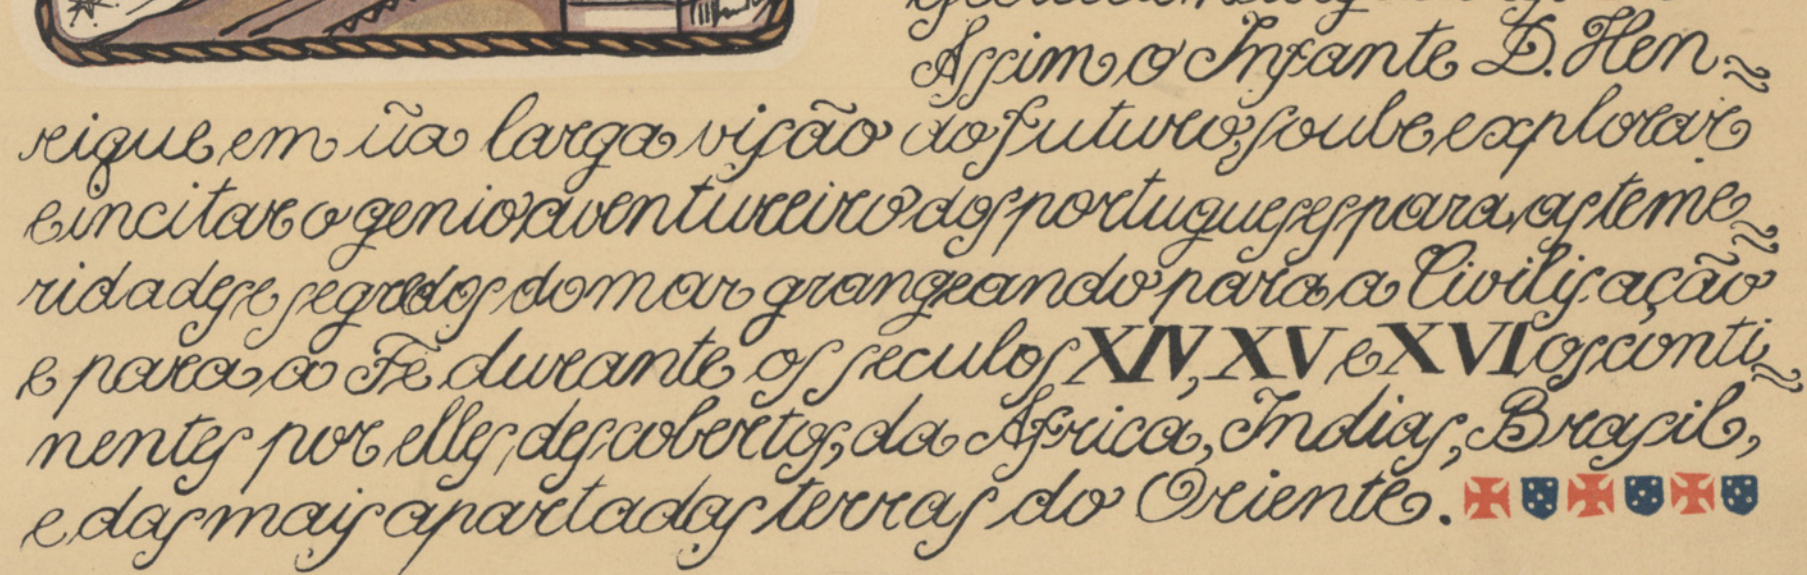 Assim o Infante D. Hen~
rique em ũa larga visão do futuro, soube explorar
e incitar o genio aventureiro dos portugueses para as teme~
ridades e segredos do mar grangeando para a Civilisação
e para a Fé durante os seculos XIV, XV e XVI os conti~
nentes por elles descobertos, da Africa, Indias, Brasil,
e das mais apartadas terras do Oriente.